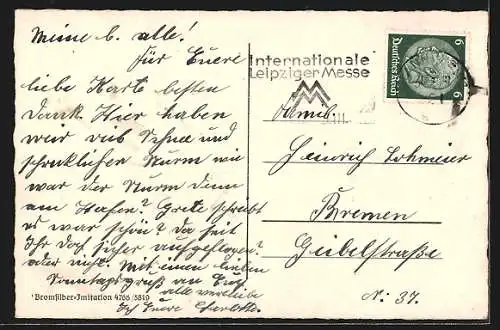 Meine l. alle!
für Euere
liebe Karte besten
Dank. Hier haben
wir viel Schnee und
schrecklichen Sturm wie
war der Sturm denn
am Hafen? Grete schreibt
es war schön? Da seit
Ihr doch sicher aufgeflogen?
oder nicht. Mit einen lieben
Sonntagsgruß an Euch
alle verbleibe
Ich Euere
Bromsilber-Imitation 4766/5819
Internationale
Leipziger Messe
Deutsches Reich
6
6
Heinrich Lohmeier
Bremen
Geibelstraße
No: 37.